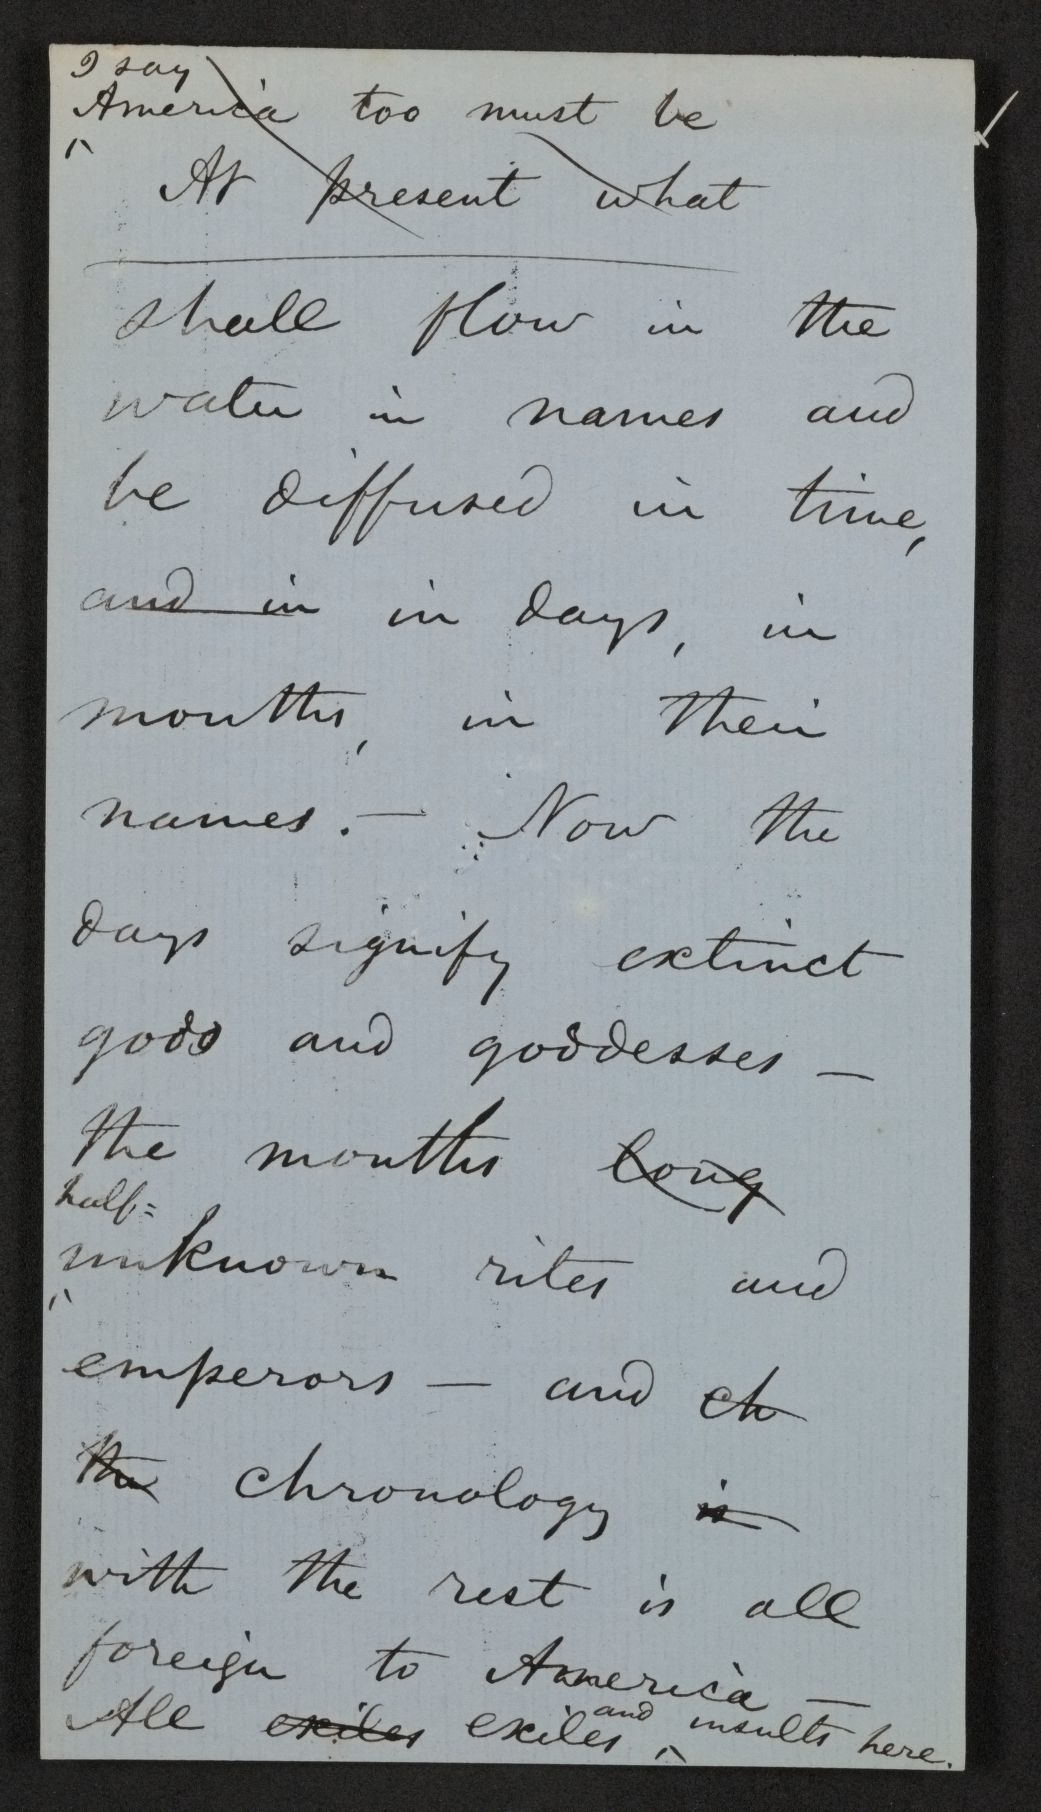 I say
America too must be
At present what
shall flow in the
water in names and
be diffused in time,
and in in days, in
months, in their
names. — Now the
days signify extinct
gods and goddesses —
the months long
half=
unknown rites and
emperors — and ch
the chronology is
with the rest is all
foreign to America —
All exiles exiles and insults here.